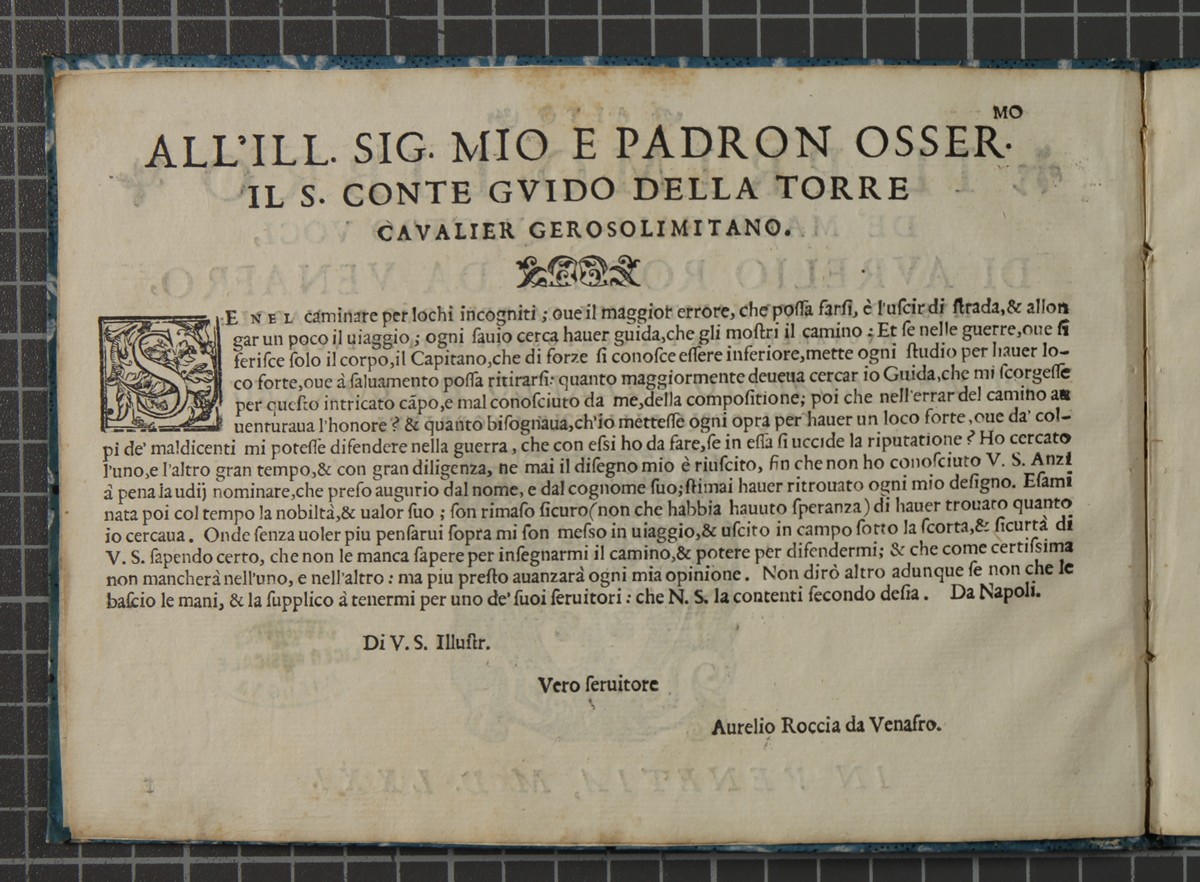 ALL'ILL. SIG. MIO E PADRON OSSER.MO
IL S. CONTE GVIDO DELLA TORRE
CAVALIER GEROSOLIMITANO.
SE NEL caminare per lochi incogniti ; oue il maggior errore, che poſſa farſi, è l'uſcir di ſtrada,& allon
gar un poco il uiaggio ; ogni ſauio cerca hauer guida,che gli moſtri il camino ; Et ſe nelle guerre,oue ſi
feriſce ſolo il corpo,il Capitano,che di forze ſi conoſce eſſere inferiore,mette ogni ſtudio per hauer lo-
co forte,oue à ſaluamento poſſa ritirarſi: quanto maggiormente deueua cercar io Guida,che mi ſcorgeſſe
per queſto intricato cãpo,e mal conoſciuto da me,della compoſitione; poi che nell'errar del camino au
uenturaua l'honore ? & quanto biſognaua,ch'io metteſſe ogni opra per hauer un loco forte,oue da' col-
pi de' maldicenti mi poteſſe difendere nella guerra, che con eſsi ho da fare,ſe in eſſa ſi uccide la riputatione ? Ho cercato
l'uno,e l'altro gran tempo,& con gran diligenza, ne mai il diſegno mio è riuſcito, fin che non ho conoſciuto V. S. Anzi
à pena la udij nominare,che preſo augurio dal nome, e dal cognome ſuo;ſtimai hauer ritrouato ogni mio deſigno. Eſami
nata poi col tempo la nobiltà,& ualor ſuo ; ſon rimaſo ſicuro(non che habbia hauuto ſperanza) di hauer trouato quanto
io cercaua. Onde ſenza uoler piu penſarui ſopra mi ſon meſſo in uiaggio,& uſcito in campo ſotto la ſcorta,& ſicurtà di
V. S. ſapendo certo, che non le manca ſapere per inſegnarmi il camino,& potere per difendermi; & che come certiſsima
non mancherà nell'uno, e nell'altro : ma piu preſto auanzarà ogni mia opinione. Non dirò altro adunque ſe non che le
baſcio le mani, & la ſupplico à tenermi per uno de' ſuoi ſeruitori : che N. S. la contenti ſecondo deſia. Da Napoli.
Di V. S. Illuſtr.
Vero ſeruitore
Aurelio Roccia da Venafro.